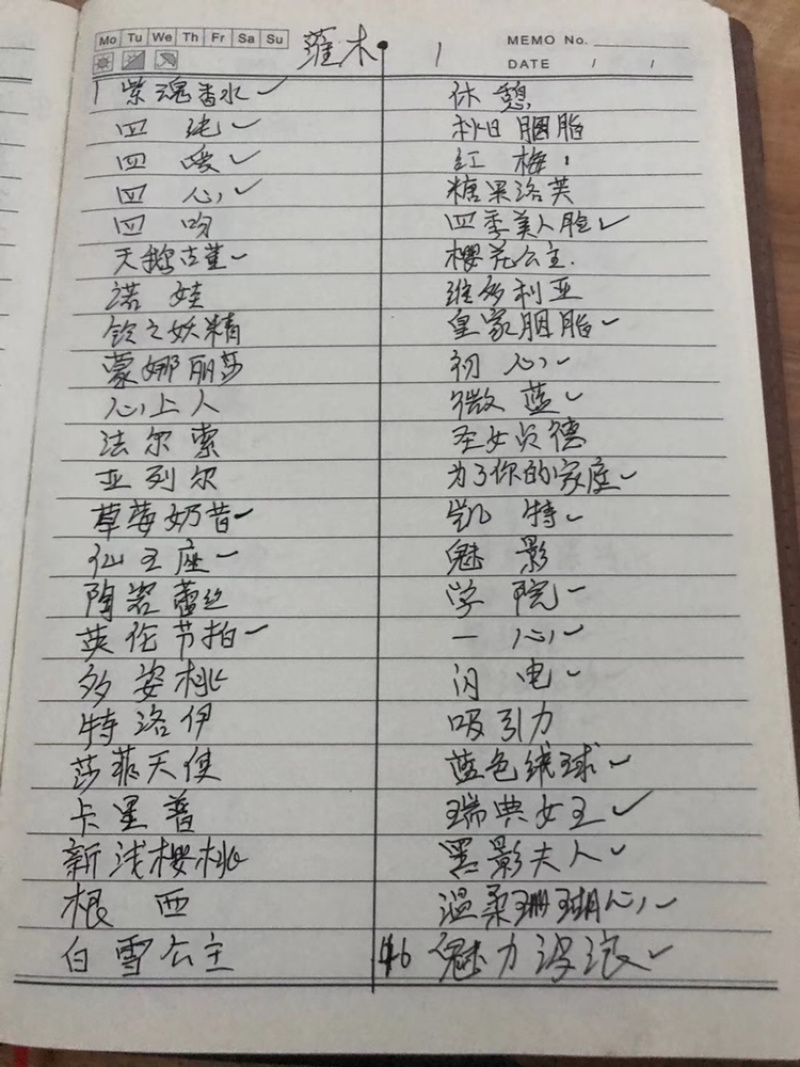 Mo Tu We Th Fr Sa Su
MEMO No.
DATE / /
木 1
1 紫魂香水 ✓
四 纯 ✓
四 暖 ✓
四 心 ✓
四 吻
天鹅古堇 ✓
诺 娃
铃之妖精
蒙娜丽莎
心上人
法尔索
亚列尔
草莓奶昔 ✓
仙王座 ✓
陶瓷蕾丝
英伦节拍 ✓
多姿桃
特洛伊
莎菲天使
卡里普
新浅樱桃
根 西
白雪公主
休 憩
秋日胭脂
红 梅
糖果洛芙
四季美人脸 ✓
樱花公主.
维多利亚
皇家胭脂 ✓
初 心 ✓
微 蓝 ✓
圣女贞德
为了你的家庭 ✓
凯 特 ✓
魅 影
学 院 ✓
一 心 ✓
闪 电 ✓
吸引力
蓝色绒球 ✓
瑞典女王 ✓
黑影夫人 ✓
温柔珊瑚心 ✓
46 魅力波浪 ✓